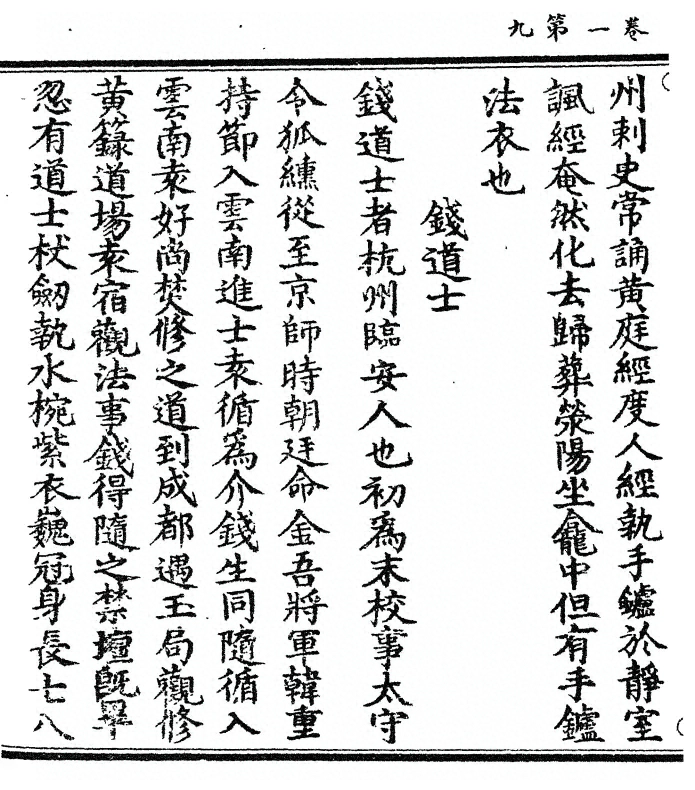 卷一第九
州刺史常誦黃庭經度人經執手鑪於靜室
諷經奄然化去歸葬滎陽坐龕中但有手鑪
法衣也
錢道士
錢道士者杭州臨安人也初爲末校事太守
令狐纁從至京師時朝廷命金吾將軍韓重
持節入雲南進士袁循爲介錢生同隨循入
雲南袁好尚焚修之道到成都遇玉局觀修
黃籙道場袁宿觀法事錢得隨之禁壇旣畢
忽有道士杖劒執水椀紫衣巍冠身長七八